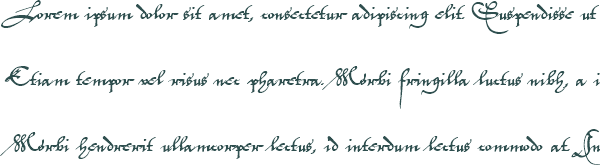 Lorem ipsum dolor sit amet, consectetur adipiscing elit. Suspendisse ut
Etiam tempor vel risus nec pharetra. Morbi fringilla luctus nibh, a i
Morbi hendrerit ullamcorper lectus, id interdum lectus commodo at. In